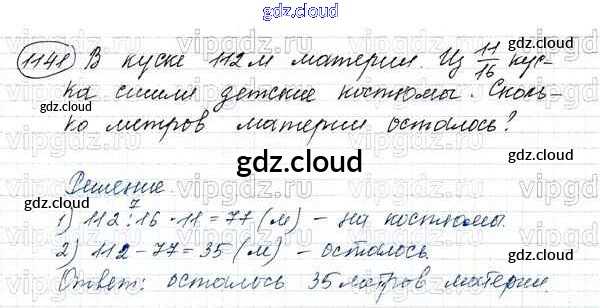 gdz.cloud
1148 В куске 112 м материи. Из 11/16 кус-
ка сшили детские костюмы. Сколь-
ко метров материи осталось?
gdz.cloud
Решение.
1) 112 : 16 · 11 = 77 (м) – на костюмы.
2) 112 – 77 = 35 (м) – осталось.
Ответ: осталось 35 метров материи.